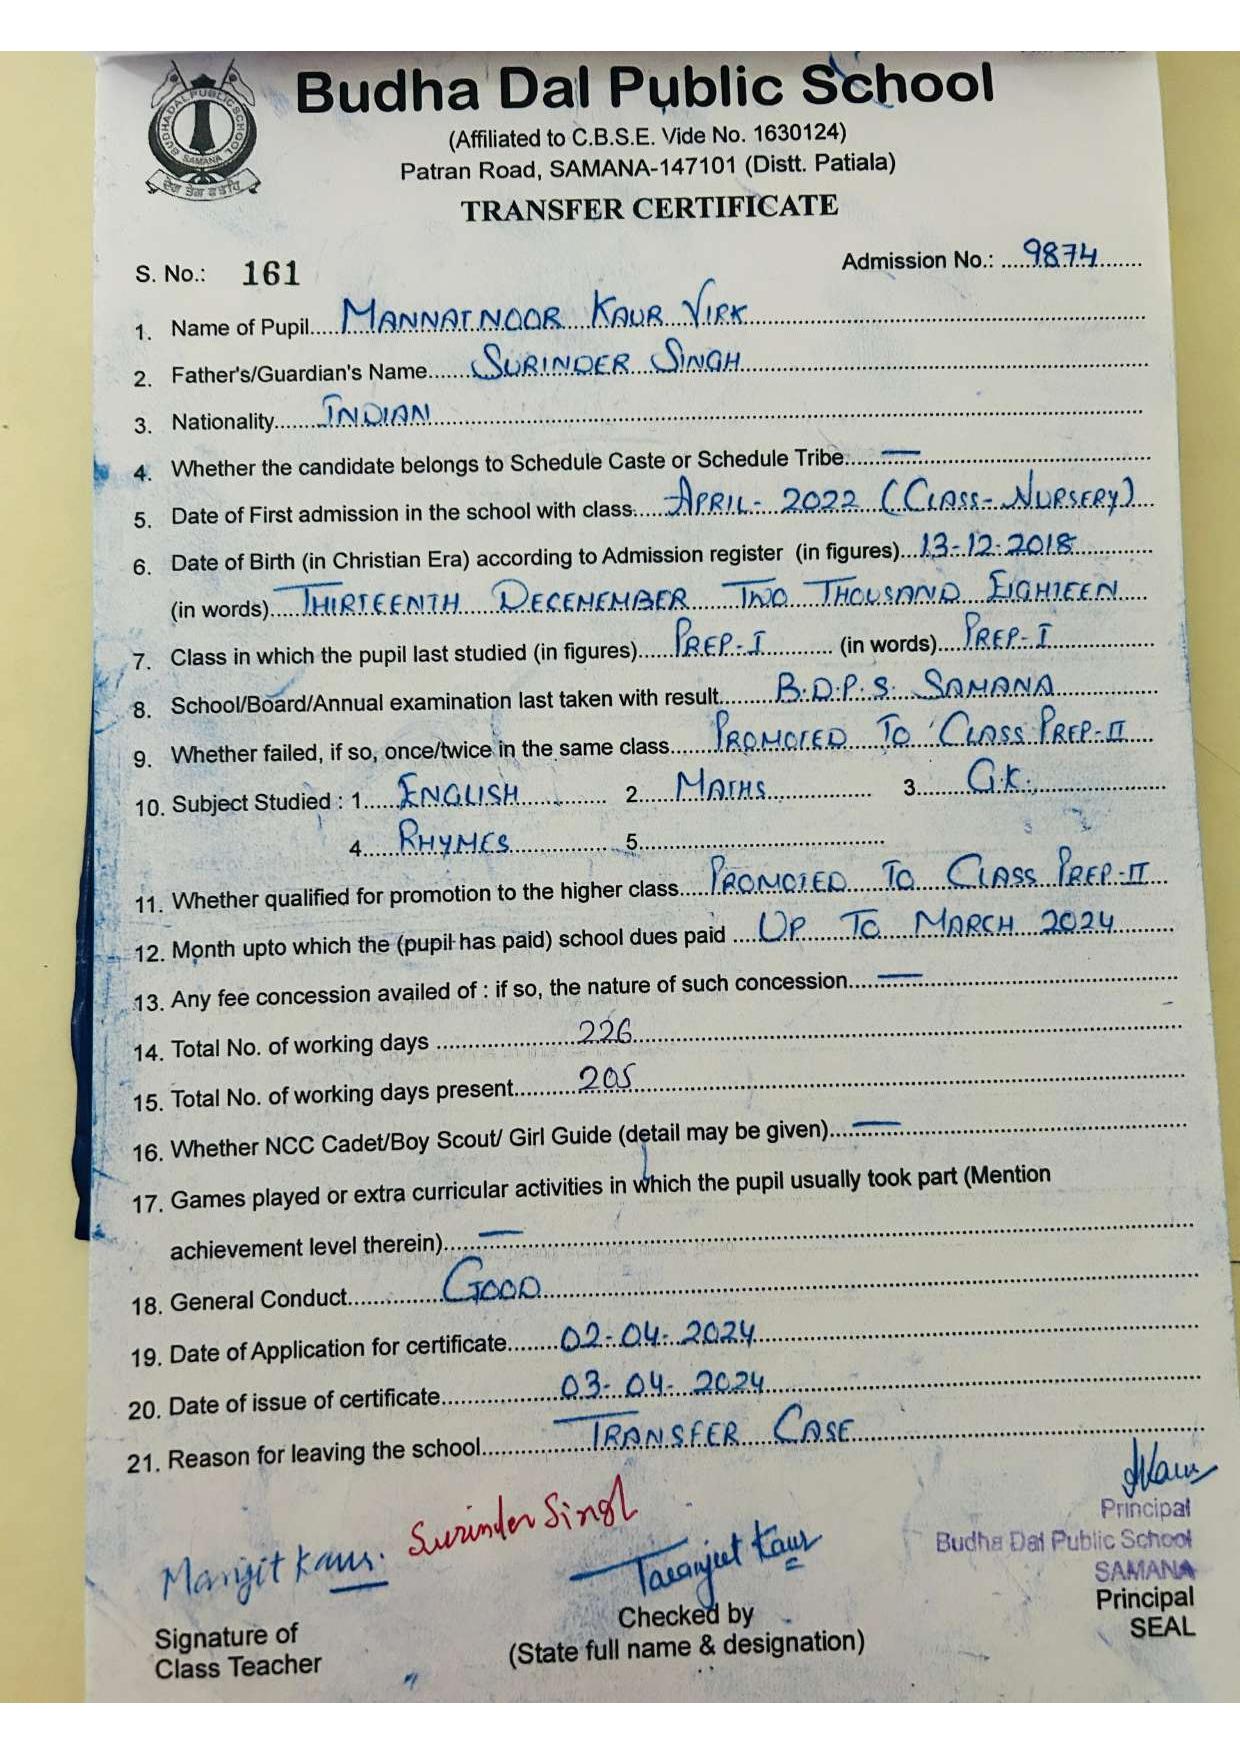 Budha Dal Public School
(Affiliated to C.B.S.E. Vide No. 1630124)
Patran Road, SAMANA-147101 (Distt. Patiala)
TRANSFER CERTIFICATE
BUDHA DAL PUBLIC SCHOOL
SAMANA
S. No.: 161 Admission No.: 9874
1. Name of Pupil MANNATNOOR KAUR VIRK
2. Father's/Guardian's Name SURINDER SINGH
3. Nationality INDIAN
4. Whether the candidate belongs to Schedule Caste or Schedule Tribe —
5. Date of First admission in the school with class APRIL-2022 (CLASS-NURSERY)
6. Date of Birth (in Christian Era) according to Admission register (in figures) 13-12-2018
(in words) THIRTEENTH DECEMEMBER TWO THOUSAND EIGHTEEN
7. Class in which the pupil last studied (in figures) PREP-I (in words) PREP-I
8. School/Board/Annual examination last taken with result B.D.P.S. SAMANA
9. Whether failed, if so, once/twice in the same class PROMOTED TO CLASS PREP-II
10. Subject Studied : 1. ENGLISH 2. MATHS 3. G.K.
4. RHYMES 5.
11. Whether qualified for promotion to the higher class PROMOTED TO CLASS PREP-II
12. Month upto which the (pupil has paid) school dues paid UP TO MARCH 2024
13. Any fee concession availed of : if so, the nature of such concession —
14. Total No. of working days 226
15. Total No. of working days present 205
16. Whether NCC Cadet/Boy Scout/ Girl Guide (detail may be given) —
17. Games played or extra curricular activities in which the pupil usually took part (Mention
achievement level therein) —
18. General Conduct GOOD
19. Date of Application for certificate 02-04-2024
20. Date of issue of certificate 03-04-2024
21. Reason for leaving the school TRANSFER CASE
Manjit Kaur. Surinder Singh Taranjeet Kaur
Principal
Budha Dal Public School
SAMANA
Signature of
Class Teacher
Checked by
(State full name & designation)
Principal
SEAL